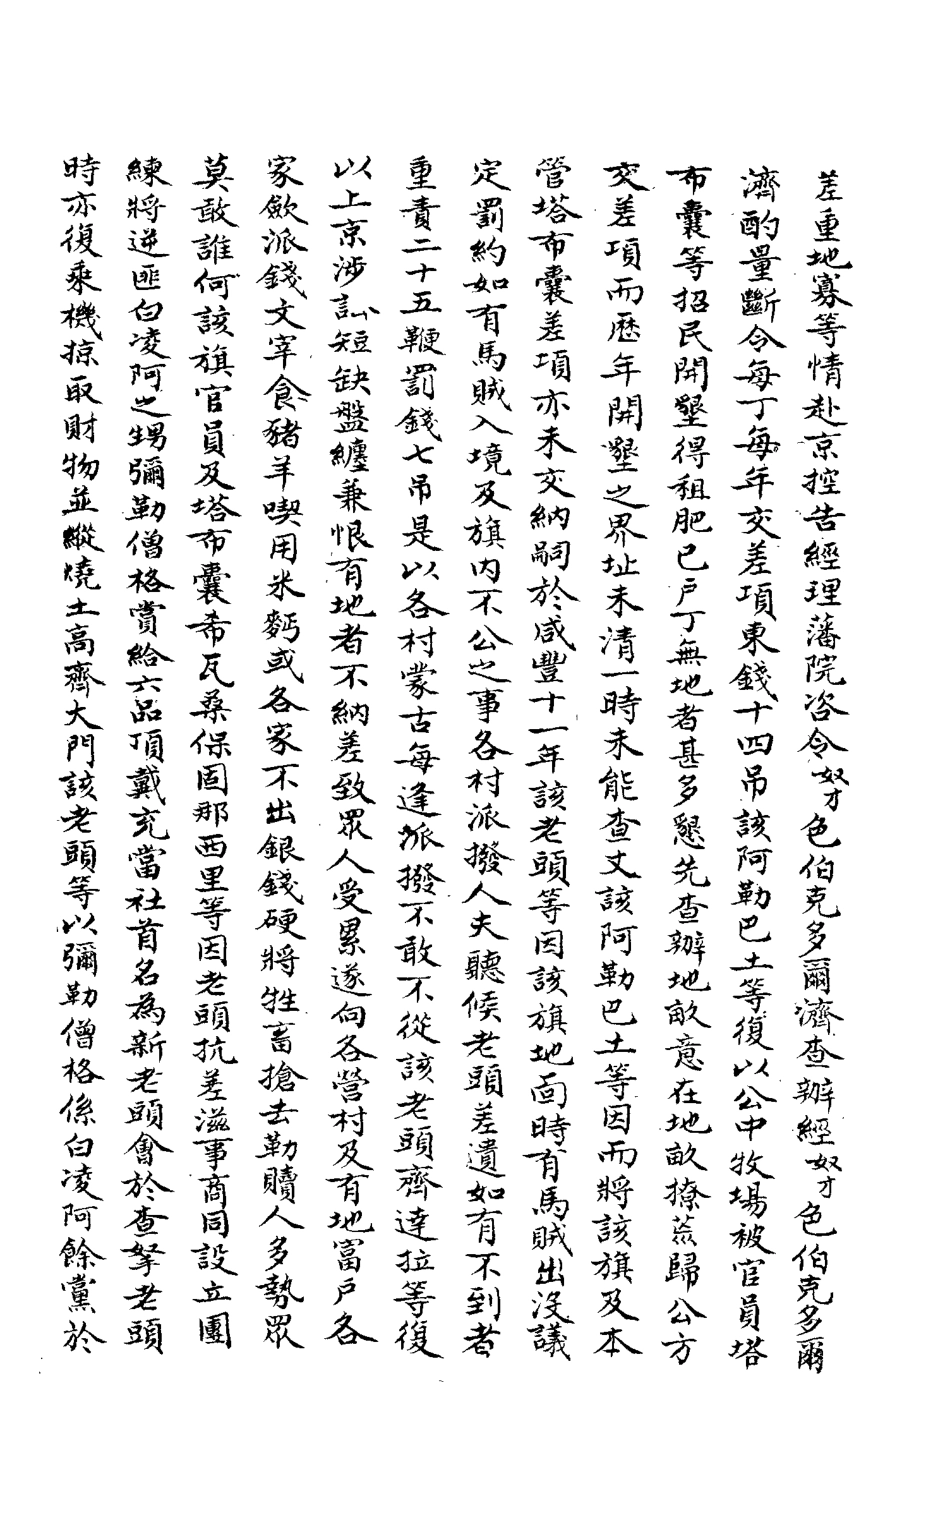 差重地寡等情赴京控告經理藩院咨令奴才色伯克多爾濟查辦經奴才色伯克多爾
濟酌量斷令每丁每年交差項東錢十四吊該阿勒巴土等復以公中牧場被官員塔
布囊等招民開墾得租肥己戶丁無地者甚多懇先查辦地畝意在地畝撩荒歸公方
交差項而歷年開墾之界址未清一時未能查丈該阿勒巴土等因而將該旗及本
管塔布囊差項亦未交納嗣於咸豐十一年該老頭等因該旗地面時有馬賊出沒議
定罰約如有馬賊入境及旗內不公之事各村派撥人夫聽候老頭差遣如有不到者
重責二十五鞭罰錢七吊是以各村蒙古每逢派撥不敢不從該老頭齊達拉等復
以上京涉訟短缺盤纏兼恨有地者不納差致眾人受累遂向各營村及有地富戶各
家歛派錢文宰食豬羊喫用米麪或各家不出銀錢硬將牲畜搶去勒贖人多勢眾
莫敢誰何該旗官員及塔布囊希瓦桑保固那西里等因老頭抗差滋事商同設立團
練將逆匪白凌阿之甥彌勒僧格賞給六品頂戴充當社首名為新老頭會於查拏老頭
時亦復乘機掠取財物並縱燒土高齊大門該老頭等以彌勒僧格係白凌阿餘黨於